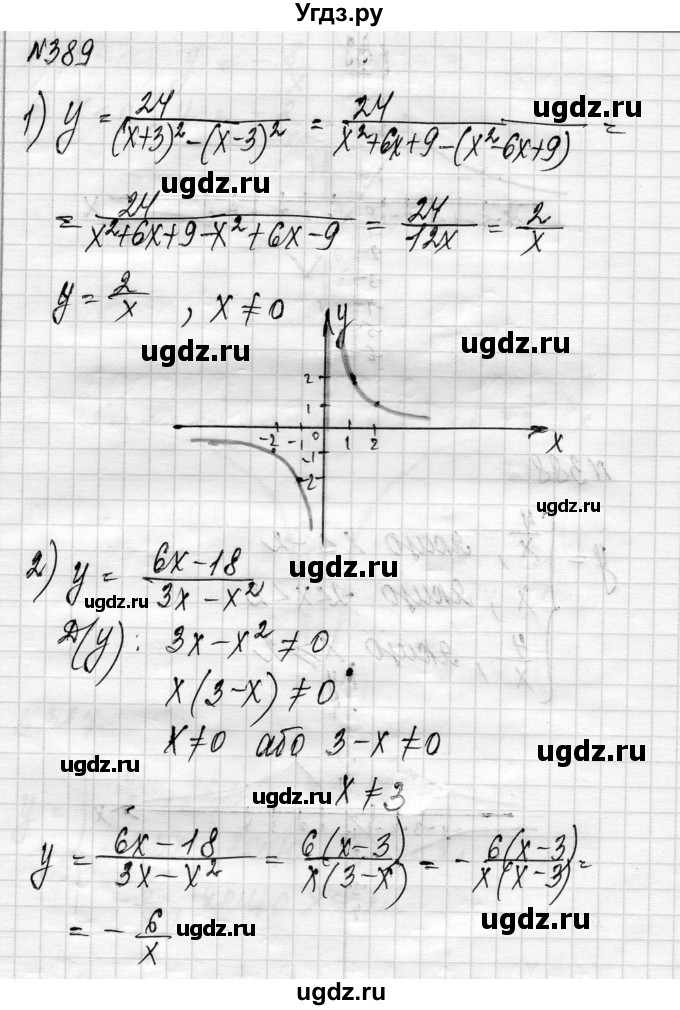 Угдз.ру
№389
1) y = 24/((x+3)²-(x-3)²) = 24/(x²+6x+9-(x²-6x+9)) =
ugdz.ru
ugdz.ru
= 24/(x²+6x+9-x²+6x-9) = 24/12x = 2/x
y = 2/x , x ≠ 0
ugdz.ru
ugdz.ru
y
2
1
-2 -1 0 1 2 x
-1
-2
ugdz.ru
2) y = (6x-18)/(3x-x²)
ugdz.ru
ugdz.ru
Д(y): 3x-x² ≠ 0
x(3-x) ≠ 0
x≠0 або 3-x≠0
ugdz.ru
ugdz.ru
ugdz.ru
x ≠ 3
y = (6x-18)/(3x-x²) = 6(x-3)/x(3-x) = - 6(x-3)/x(x-3) =
= - 6/x
ugdz.ru
ugdz.ru
ugdz.ru